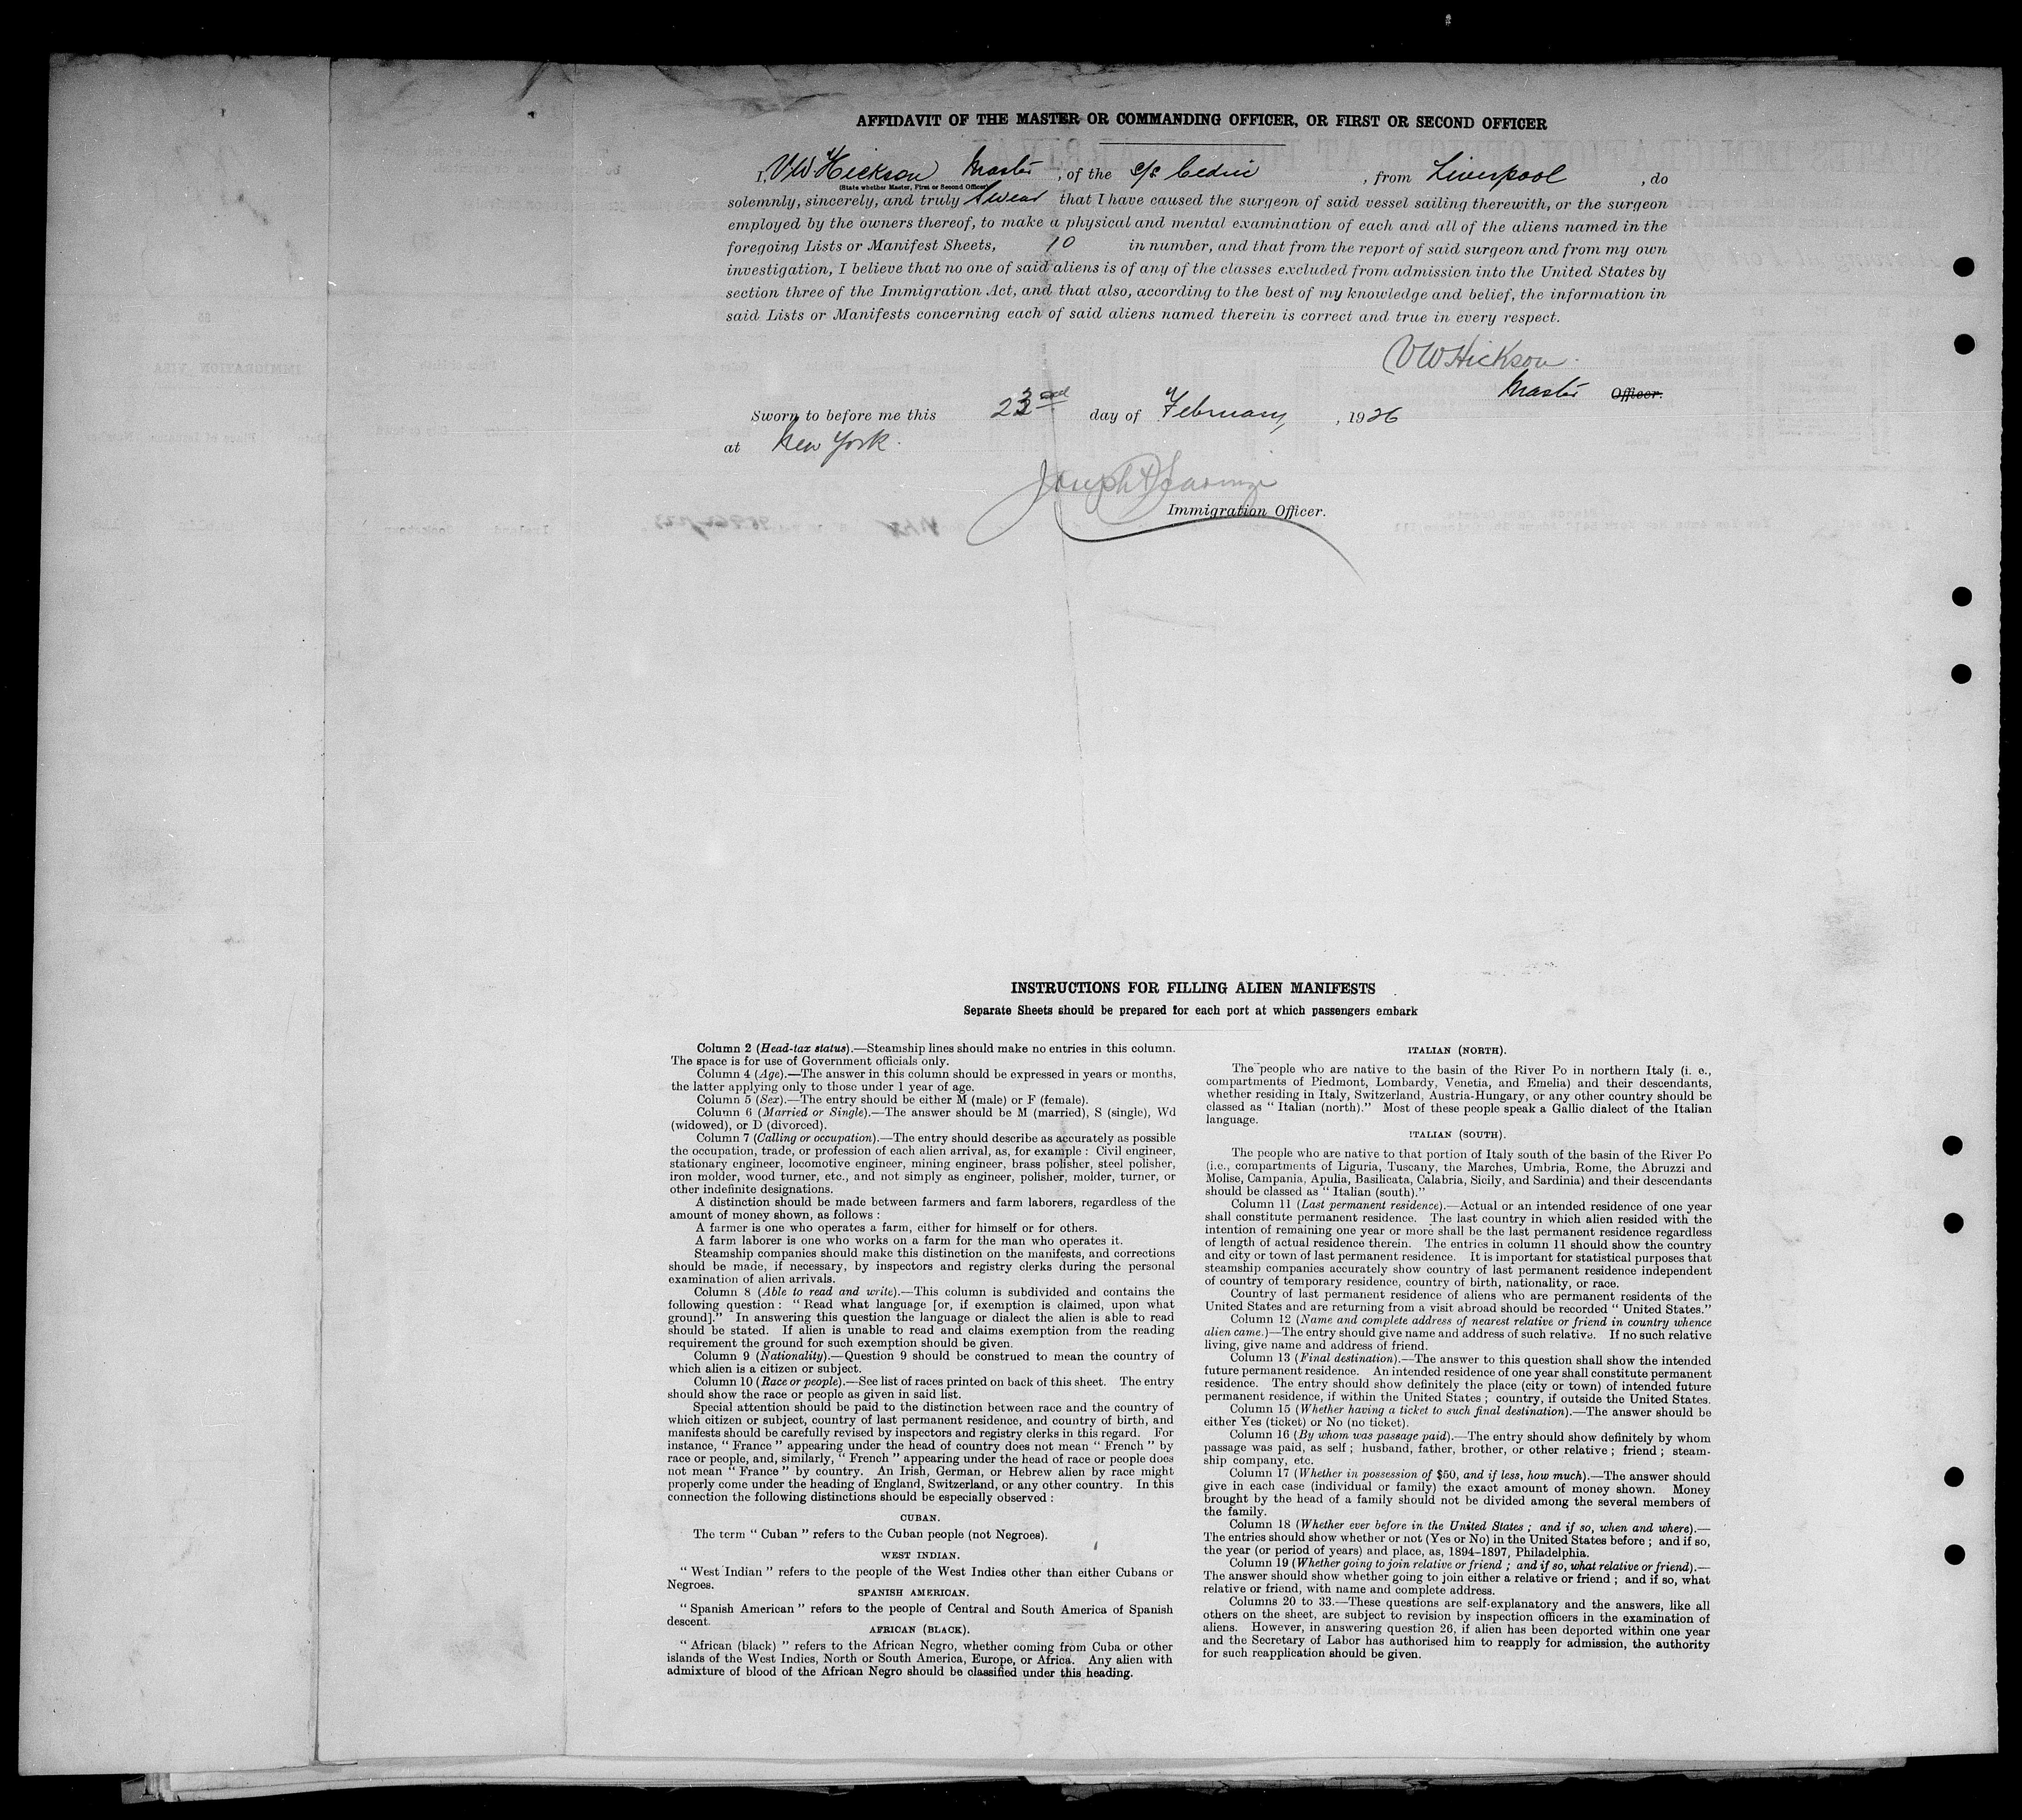 AFFIDAVIT OF THE MASTER OR COMMANDING OFFICER, OR FIRST OR SECOND OFFICER
I, VW Hickson Master, of the s/s Cedric, from Liverpool, do
(State whether Master, First or Second Officer)
solemnly, sincerely, and truly Swear that I have caused the surgeon of said vessel sailing therewith, or the surgeon
employed by the owners thereof, to make a physical and mental examination of each and all of the aliens named in the
foregoing Lists or Manifest Sheets, 10 in number, and that from the report of said surgeon and from my own
investigation, I believe that no one of said aliens is of any of the classes excluded from admission into the United States by
section three of the Immigration Act, and that also, according to the best of my knowledge and belief, the information in
said Lists or Manifests concerning each of said aliens named therein is correct and true in every respect.
VW Hickson
Master Officer.
Sworn to before me this 23rd day of February, 1926
at New York.
Joseph
Immigration Officer.
INSTRUCTIONS FOR FILLING ALIEN MANIFESTS
Separate Sheets should be prepared for each port at which passengers embark
Column 2 (Head-tax status).—Steamship lines should make no entries in this column.
The space is for use of Government officials only.
Column 4 (Age).—The answer in this column should be expressed in years or months,
the latter applying only to those under 1 year of age.
Column 5 (Sex).—The entry should be either M (male) or F (female).
Column 6 (Married or Single).—The answer should be M (married), S (single), Wd
(widowed), or D (divorced).
Column 7 (Calling or occupation).—The entry should describe as accurately as possible
the occupation, trade, or profession of each alien arrival, as, for example : Civil engineer,
stationary engineer, locomotive engineer, mining engineer, brass polisher, steel polisher,
iron molder, wood turner, etc., and not simply as engineer, polisher, molder, turner, or
other indefinite designations.
A distinction should be made between farmers and farm laborers, regardless of the
amount of money shown, as follows :
A farmer is one who operates a farm, either for himself or for others.
A farm laborer is one who works on a farm for the man who operates it.
Steamship companies should make this distinction on the manifests, and corrections
should be made, if necessary, by inspectors and registry clerks during the personal
examination of alien arrivals.
Column 8 (Able to read and write).—This column is subdivided and contains the
following question : " Read what language [or, if exemption is claimed, upon what
ground]." In answering this question the language or dialect the alien is able to read
should be stated. If alien is unable to read and claims exemption from the reading
requirement the ground for such exemption should be given.
Column 9 (Nationality).—Question 9 should be construed to mean the country of
which alien is a citizen or subject.
Column 10 (Race or people).—See list of races printed on back of this sheet. The entry
should show the race or people as given in said list.
Special attention should be paid to the distinction between race and the country of
which citizen or subject, country of last permanent residence, and country of birth, and
manifests should be carefully revised by inspectors and registry clerks in this regard. For
instance, " France " appearing under the head of country does not mean " French " by
race or people, and, similarly, " French " appearing under the head of race or people does
not mean " France " by country. An Irish, German, or Hebrew alien by race might
properly come under the heading of England, Switzerland, or any other country. In this
connection the following distinctions should be especially observed :
CUBAN.
The term " Cuban " refers to the Cuban people (not Negroes).
WEST INDIAN.
" West Indian " refers to the people of the West Indies other than either Cubans or
Negroes.
SPANISH AMERICAN.
" Spanish American " refers to the people of Central and South America of Spanish
descent.
AFRICAN (BLACK).
" African (black) " refers to the African Negro, whether coming from Cuba or other
islands of the West Indies, North or South America, Europe, or Africa. Any alien with
admixture of blood of the African Negro should be classified under this heading.
ITALIAN (NORTH).
The people who are native to the basin of the River Po in northern Italy (i. e.,
compartments of Piedmont, Lombardy, Venetia, and Emelia) and their descendants,
whether residing in Italy, Switzerland, Austria-Hungary, or any other country should be
classed as " Italian (north)." Most of these people speak a Gallic dialect of the Italian
language.
ITALIAN (SOUTH).
The people who are native to that portion of Italy south of the basin of the River Po
(i.e., compartments of Liguria, Tuscany, the Marches, Umbria, Rome, the Abruzzi and
Molise, Campania, Apulia, Basilicata, Calabria, Sicily, and Sardinia) and their descendants
should be classed as " Italian (south)."
Column 11 (Last permanent residence).—Actual or an intended residence of one year
shall constitute permanent residence. The last country in which alien resided with the
intention of remaining one year or more shall be the last permanent residence regardless
of length of actual residence therein. The entries in column 11 should show the country
and city or town of last permanent residence. It is important for statistical purposes that
steamship companies accurately show country of last permanent residence independent
of country of temporary residence, country of birth, nationality, or race.
Country of last permanent residence of aliens who are permanent residents of the
United States and are returning from a visit abroad should be recorded " United States."
Column 12 (Name and complete address of nearest relative or friend in country whence
alien came.)—The entry should give name and address of such relative. If no such relative
living, give name and address of friend.
Column 13 (Final destination).—The answer to this question shall show the intended
future permanent residence. An intended residence of one year shall constitute permanent
residence. The entry should show definitely the place (city or town) of intended future
permanent residence, if within the United States ; country, if outside the United States.
Column 15 (Whether having a ticket to such final destination).—The answer should be
either Yes (ticket) or No (no ticket).
Column 16 (By whom was passage paid).—The entry should show definitely by whom
passage was paid, as self ; husband, father, brother, or other relative ; friend ; steam-
ship company, etc.
Column 17 (Whether in possession of $50, and if less, how much).—The answer should
give in each case (individual or family) the exact amount of money shown. Money
brought by the head of a family should not be divided among the several members of
the family.
Column 18 (Whether ever before in the United States ; and if so, when and where).—
The entries should show whether or not (Yes or No) in the United States before ; and if so,
the year (or period of years) and place, as, 1894–1897, Philadelphia.
Column 19 (Whether going to join relative or friend ; and if so, what relative or friend).—
The answer should show whether going to join either a relative or friend ; and if so, what
relative or friend, with name and complete address.
Columns 20 to 33.—These questions are self-explanatory and the answers, like all
others on the sheet, are subject to revision by inspection officers in the examination of
aliens. However, in answering question 26, if alien has been deported within one year
and the Secretary of Labor has authorised him to reapply for admission, the authority
for such reapplication should be given.